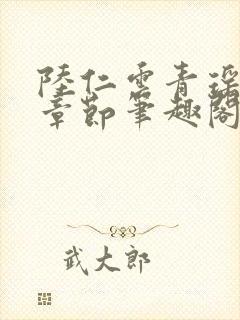 陸仁雲青瑶
章節筆趣閣
武大郎